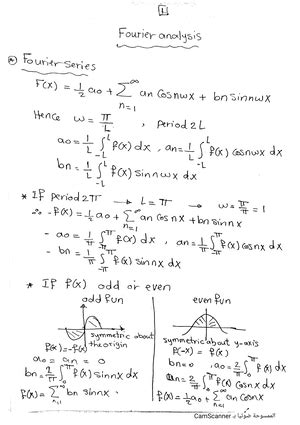 1
Fourier analysis
* Fourier series
F(x) = 1/2 a₀ + ∑_{n=1}^{∞} an Cosnωx + bn sinnωx
Hence ω = π/L , period 2L
a₀ = 1/L ∫_{-L}^{L} f(x) dx , an = 1/L ∫_{-L}^{L} f(x) Cosnωx dx
bn = 1/L ∫_{-L}^{L} f(x) Sinnωx dx
* IF period 2π → L = π → ω = π/π = 1
∴ f(x) = 1/2 a₀ + ∑_{n=1}^{∞} an Cosnx + bn sinnx
- a₀ = 1/π ∫_{-π}^{π} f(x) dx , an = 1/π ∫_{-π}^{π} f(x) Cosnx dx
- bn = 1/π ∫_{-π}^{π} f(x) sinnx dx
* IF f(x) odd or even
odd fun
symmetric about
the origin
f(x) = -f(x)
a₀ = an = 0
bn = 2/π ∫_{0}^{π} f(x) sinnx dx
f(x) = ∑_{n=1}^{∞} bn sinnx
even fun
symmetric about y-axis
f(-x) = f(x)
bn = 0 , a₀ = 2/π ∫_{0}^{π} f(x) dx
an = 2/π ∫_{0}^{π} f(x) Cosnx dx
f(x) = 1/2 a₀ + ∑_{n=1}^{∞} an Cosnx
الممسوحة ضوئيا بـ CamScanner